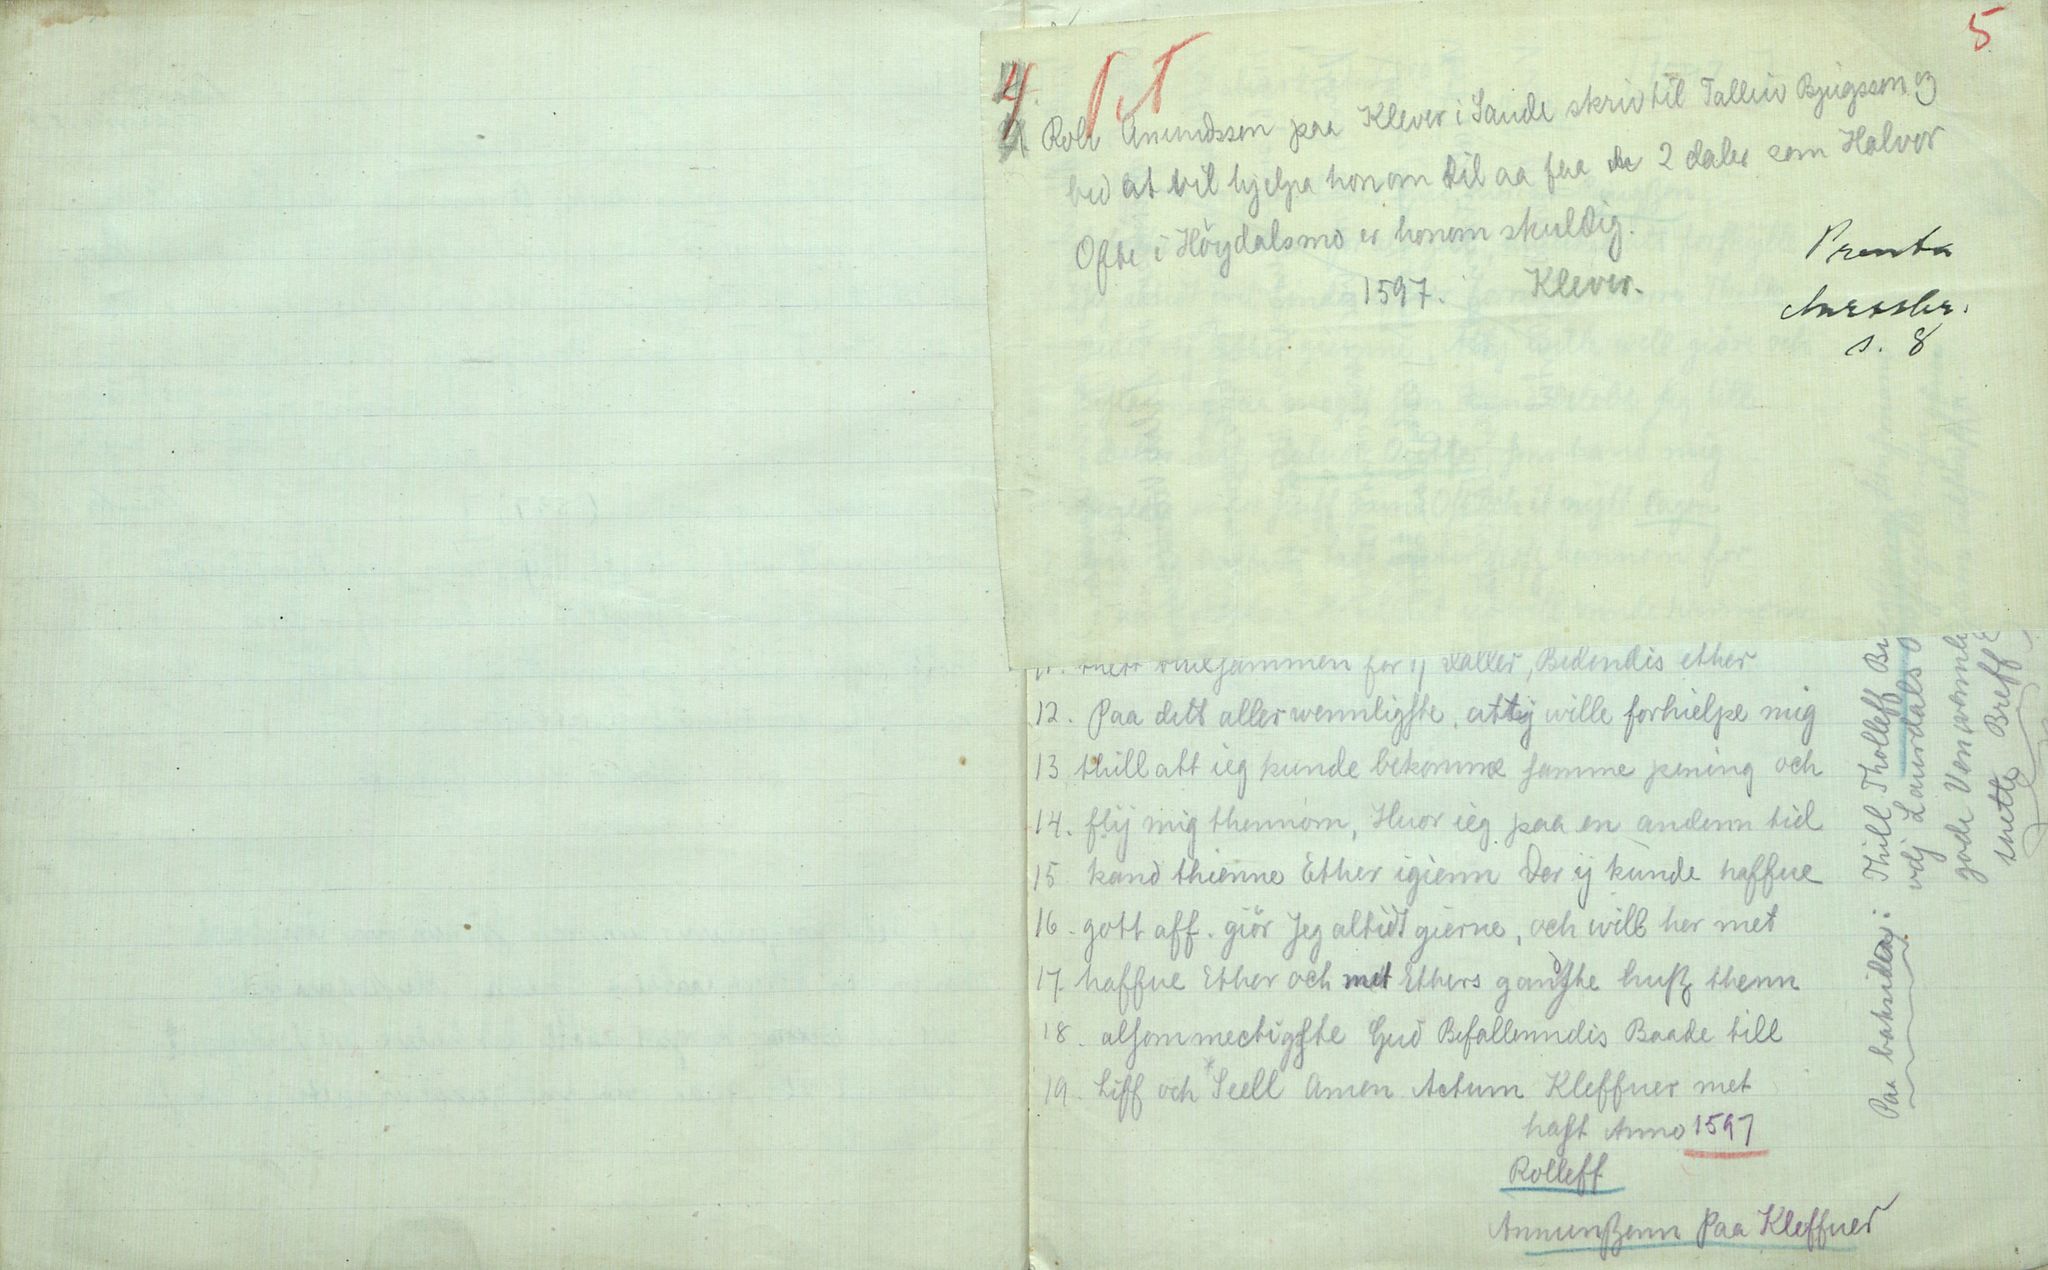 5
4.
Rolv Amundsson paa Klever i Saude skriv til Talleiv Bjugsson og
bed at vil hjelpa honom til aa faa de 2 daler som Halvor
Ofte i Høydalsmo er honom skuldig.
1597. Klever.
Prenta
Aarsskr.
s. 8
for ij daller, Bedendis ether
12. Paa dett aller wennligste, att ij wille forhielpe mig
13 thill att ieg kunde bekomme samme pening och
14. flij mig thennom, Huor ieg paa en andenn tid
15 kand thienne Ether igienn Der ij kunde haffue
16. gott aff. giör Jeg altidt gierne, och will her met
17 haffue Ether och met Ethers gandske huß thenn
18. alsommectigste Gud Befallenndis Baade till
19. Liff och Seell Amen Actum Kleffuer met
hast Anno 1597
Rolleff
Ammunßenn Paa Kleffuer
Paa baksida: Thill Tholleff
vdj Laurdals
gode Ven
Breff